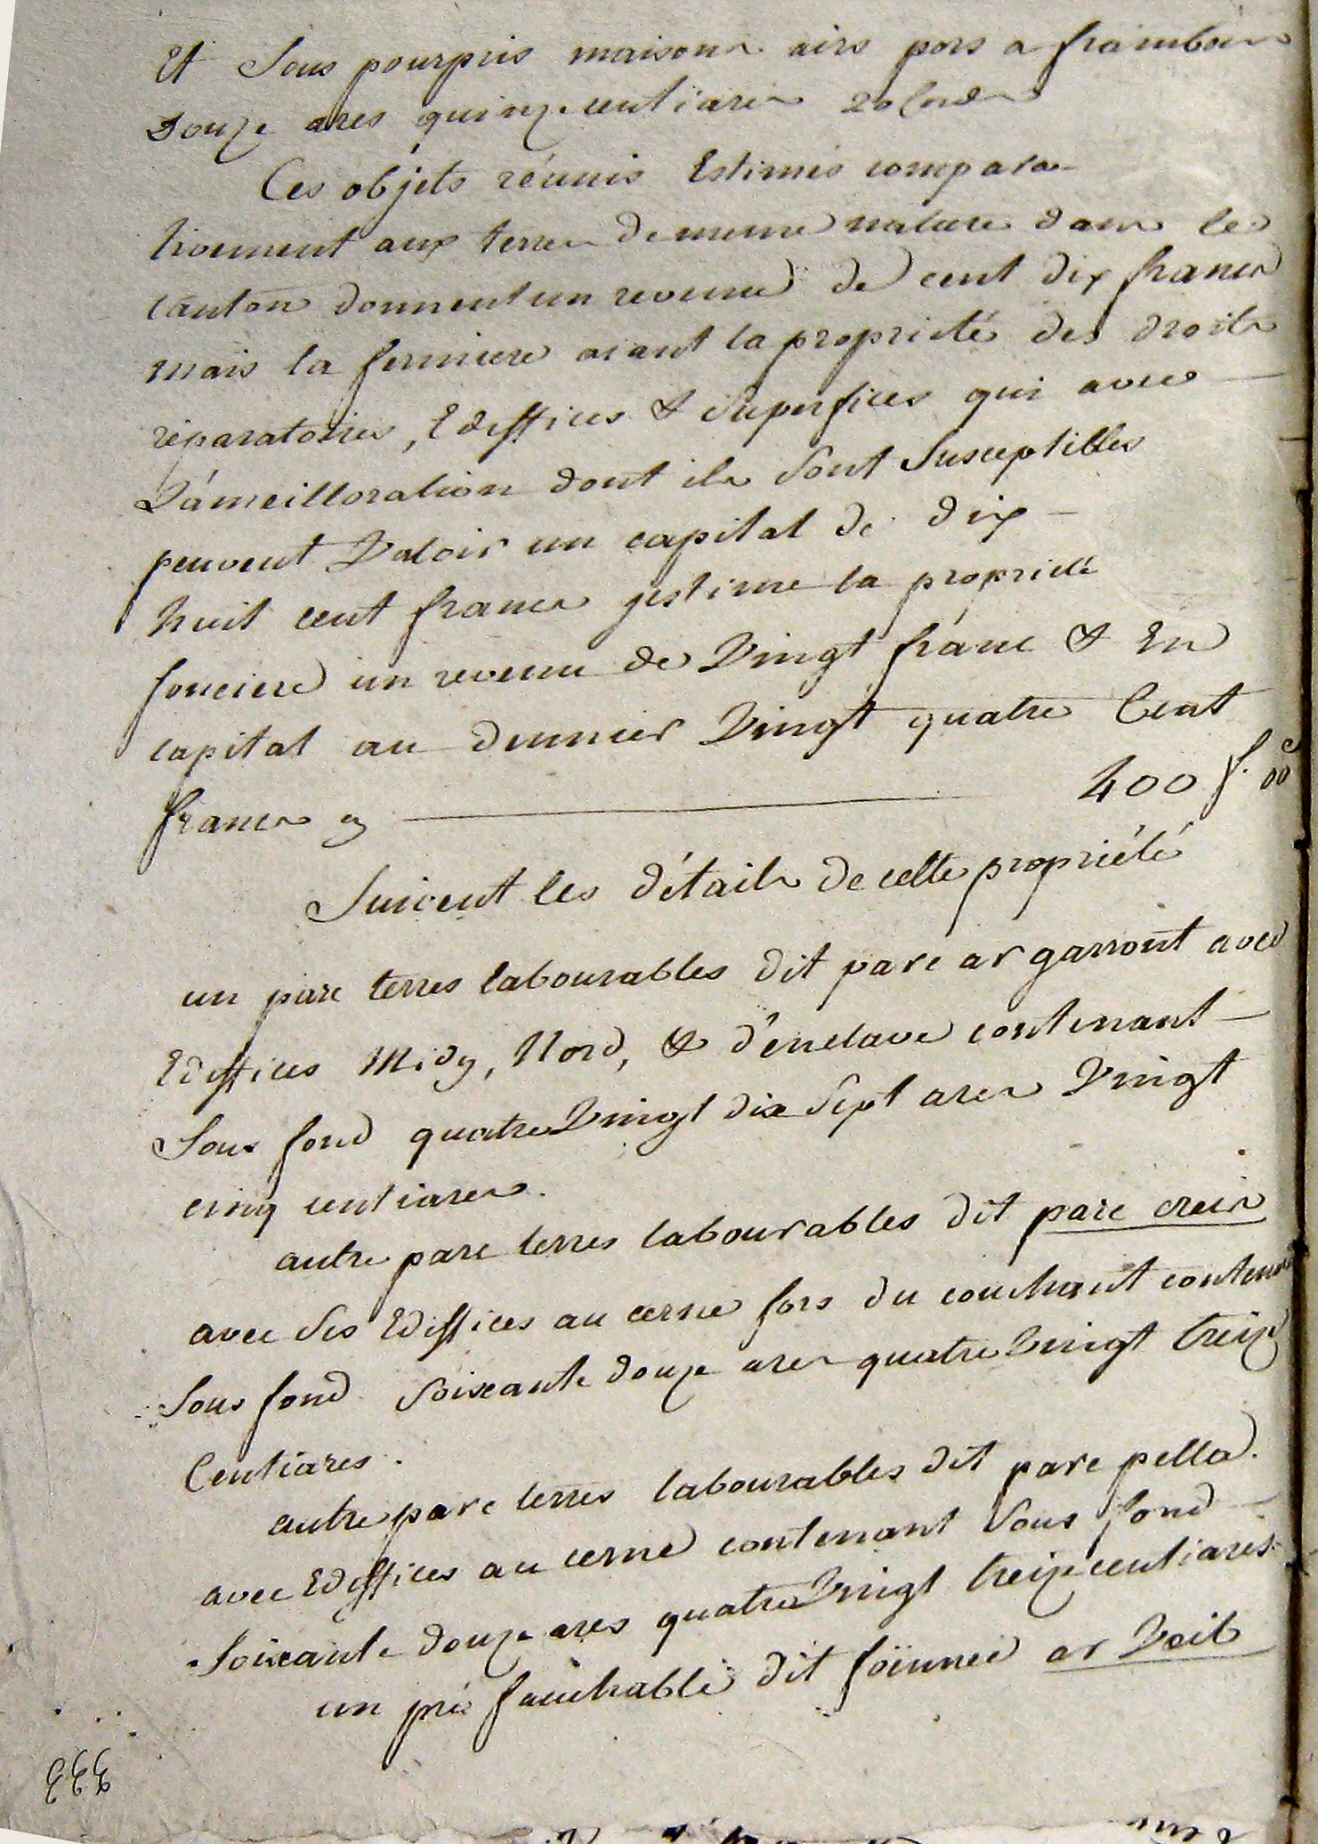 Et Sous pourpris maisons airs pors a frambois
Douze ares quinze centiares 20 cordes
Ces objets réunis Estimés compara-
tivement aux terres de meme nature dans le
canton donnent un revenu de cent dix francs
mais la fermiere aiant la propriété des droits
réparatoires, Ediffices & Superfices qui avec
L'ameilloration dont ils Sont Susceptibles
peuvent Valoir un capital de dix-
huit cent francs jestime la propriété
fonciere un revenu de Vingt franc & En
capital au dennier Vingt quatre Cent
francs cy 400 f. 00 c
Suivent les détails de cette propriété
un parc terres labourables dit parc ar garront avec
Ediffices Midy, Nord, & d'enclave contenant
Sous fond quatre Vingt dix Sept ares Vingt
cinq centiares.
autre parc terres labourables dit parc creis
avec Ses Ediffices au cerne fors du couchant contenant
Sous fond Soixante douze ares quatre Vingt treize
Centiares.
autre parc terres labourables dit parc pella
avec Ediffices au cerne contenant Sous fond
Soixante douze ares quatre Vingt treize centiares
un pré fauchable dit foünnec ar Veil